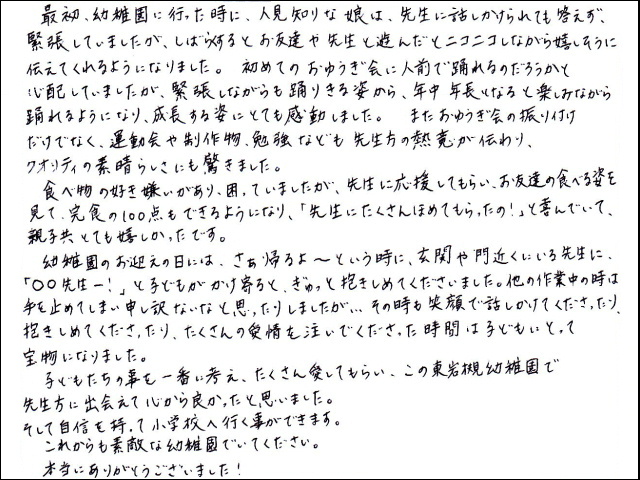 最初、幼稚園に行った時に、人見知りな娘は、先生に話しかけられても答えず、
緊張していましたが、しばらくするとお友達や先生と遊んだとニコニコしながら嬉しそうに
伝えてくれるようになりました。 初めてのおゆうぎ会に人前で踊れるのだろうかと
心配していましたが、緊張しながらも踊りきる姿から、年中年長となると楽しみながら
踊れるようになり、成長する姿にとても感動しました。 またおゆうぎ会の振り付け
だけでなく、運動会や制作物、勉強なども先生方の熱意が伝わり、
クオリティの素晴らしさにも驚きました。
食べ物の好き嫌いがあり、困っていましたが、先生に応援してもらい、お友達の食べる姿を
見て、完食の100点もできるようになり、「先生にたくさんほめてもらったの!」と喜んでいて、
親子共とても嬉しかったです。
幼稚園のお迎えの日には、さぁ帰るよ〜という時に、玄関や門近くにいる先生に、
「〇〇先生ー!」と子どもがかけ寄ると、ぎゅっと抱きしめてくださいました。他の作業中の時は
手を止めてしまい申し訳ないなと思ったりしましたが…その時も笑顔で話しかけてくださったり、
抱きしめてくださったり、たくさんの愛情を注いでくださった時間は子どもにとって
宝物になりました。
子どもたちの事を一番に考え、たくさん愛してもらい、この東岩槻幼稚園で
先生方に出会えて心から良かったと思いました。
そして自信を持って小学校へ行く事ができます。
これからも素敵な幼稚園でいてください。
本当にありがとうございました!